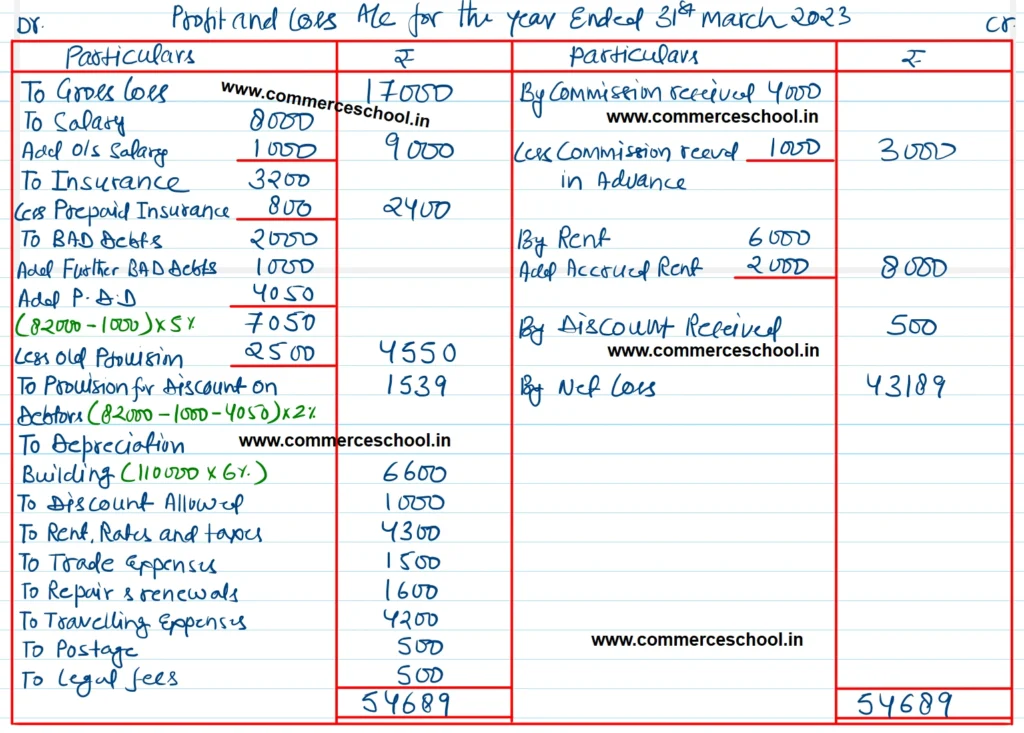 Dr. Profit and Loss A/c for the year Ended 31st march 2023 Cr.
Particulars ₹ Particulars ₹
To Gross Loss 17000 By Commission received 4000
www.commerceschool.in
To Salary 8000 www.commerceschool.in
Add O/s Salary 1000 9000 Less Commission recevd 1000 3000
To Insurance 3200 in Advance
Less Prepaid Insurance 800 2400
To BAD Debts 2000 By Rent 6000
Add Further BAD Debts 1000 Add Accrued Rent 2000 8000
Add P.D.D 4050
(82000-1000)×5% 7050 By Discount Received 500
Less Old Provision 2500 4550 www.commerceschool.in
To Provision for Discount on 1539 By Net Loss 43189
Debtors (82000-1000-4050)×2%
To Depreciation www.commerceschool.in
Building (110000×6%) 6600
To Discount Allowed 1000
To Rent, Rates and taxes 4300
To Trade Expenses 1500
To Repair & renewals 1600
To Travelling Expenses 4200
To Postage 500 www.commerceschool.in
To Legal fees 500
54689 54689